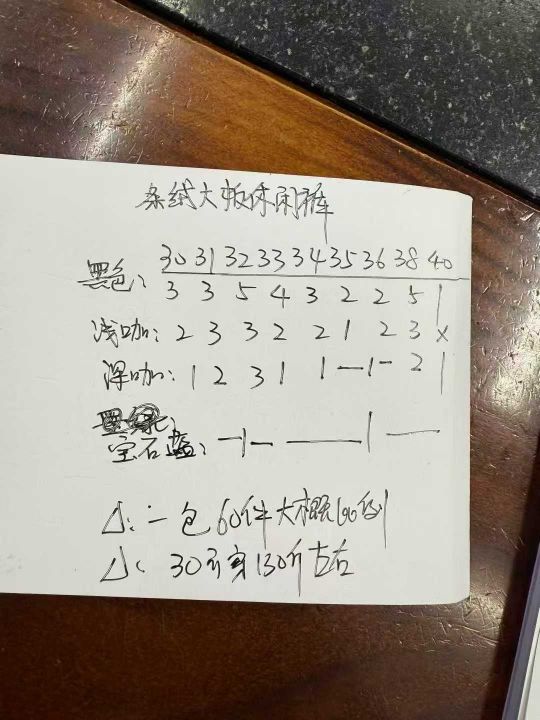 条绒大板休闲裤
30 31 32 33 34 35 36 38 40
黑色: 3 3 5 4 3 2 2 5 1
浅咖: 2 3 3 2 2 1 2 3 x
深咖: 1 2 3 1 1 — 1 - 2 1
宝石蓝: — 1 — — 1 —
△: 一包60件大概100
△: 30 130斤左右